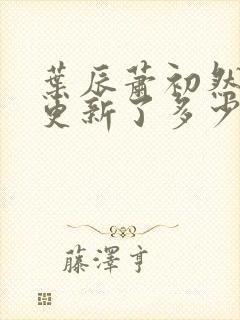 葉辰蕭初然
更新了多少
藤澤亨